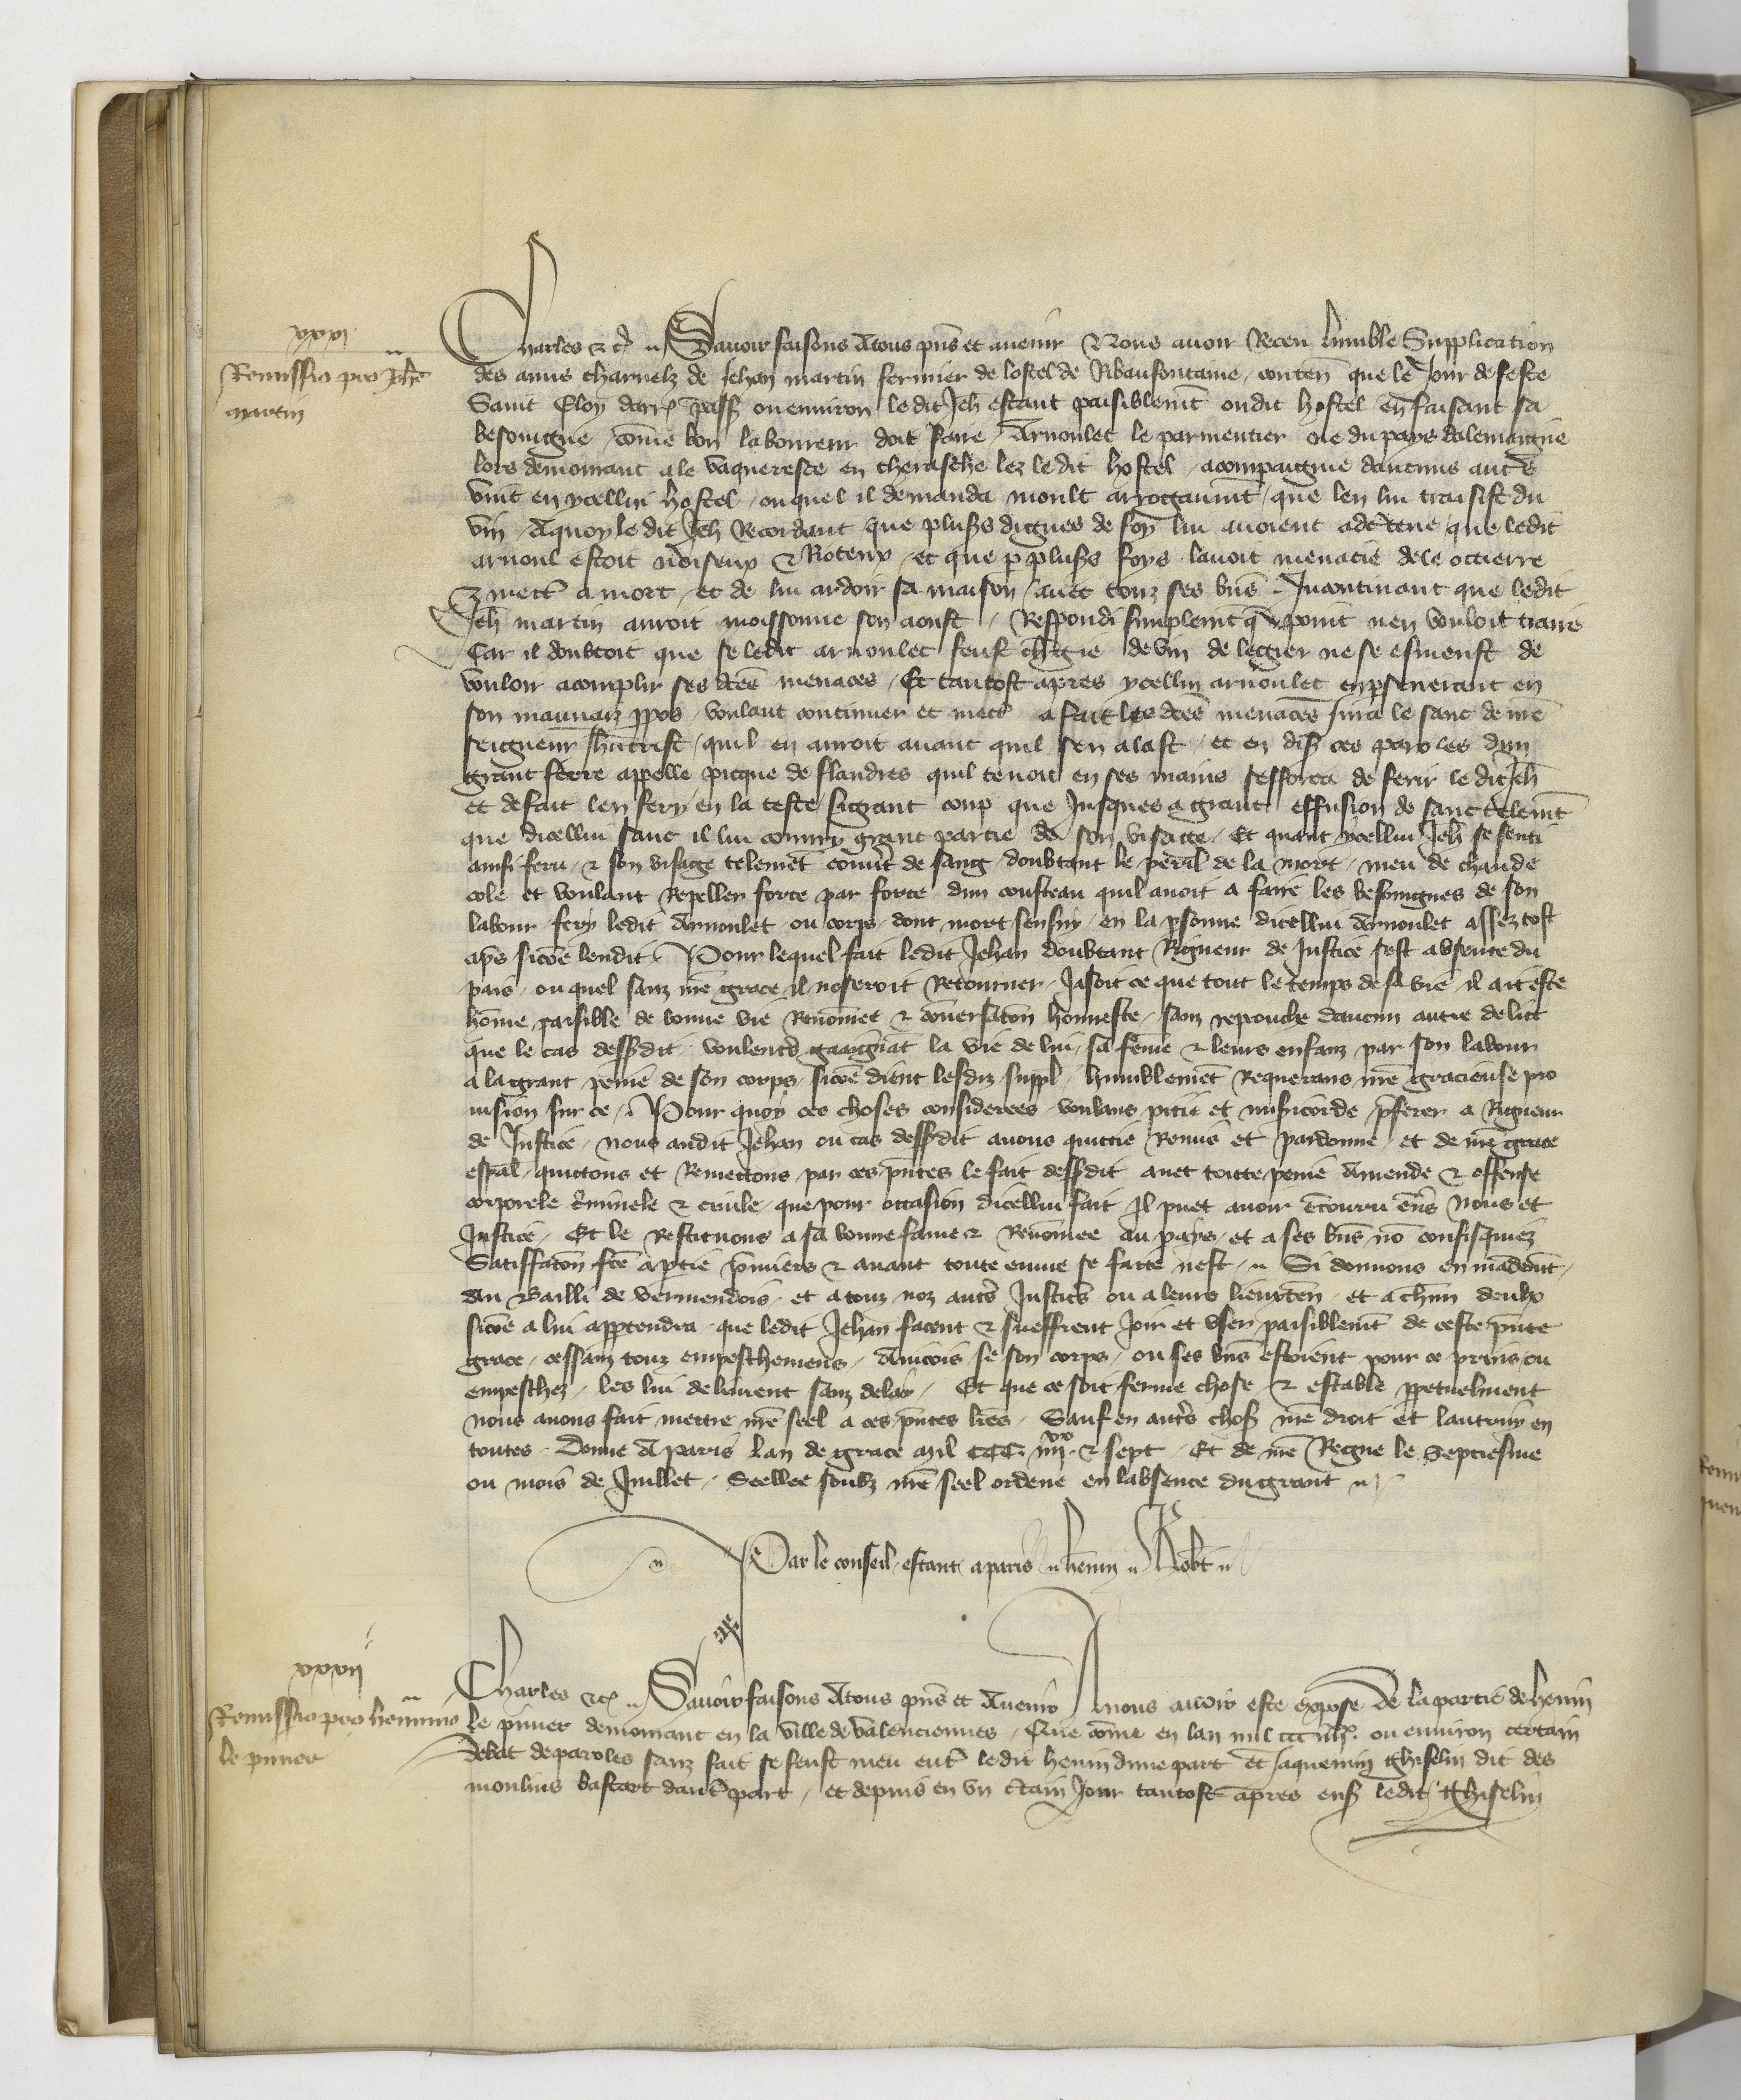 xxxi
Remissio pro Jehe
martin
Charles &c. Savoir faisons Atous pns et avenir Nous avoir Receu humble Supplication
des amis charnelz de Jehan martin fermier de lostel de Ribaufontaine, conten que le Jour de feste
Saint Eloy darr passe ou environ le dit Jeh estant paisiblemt oudit hostel en faisant sa
besoingne, come bon laboureur doit faire, Arnoulet le parmentier ne du pays dalemaigne
lors demourant a le vaqueresce en therasche lez le dit hostel, acompaignie daucuns autes
vint en ycellui hostel, ouquel il demanda moult arrogaumt, que len lui traisist du
vin, Aquoy le dit Jeh Recordant que plus dignes de foy lui avoient adcertene que ledit
arnoul estoit noiseux & Roteux, et que p plus foys lavoit menacie dele occierre
& mett a mort, et de lui ardoir sa maison avec touz ses bns. Incontinant que ledit
Jeh martin auroit moissonne son aoust, Respondi simplemt q point nen vouloit traire
Car il doubtoit que se ledit arnoulet feust chgie de vin de legier ne se esmeust de
vouloir acomplir ses dces menaces, Et tantost apres ycellui arnoulet en psenerant en
son mauvaiz ppos, voulant continuer et mett a fait les dces menaces jura le sanc de nre
seigneur Jhucrist, quil en auroit avant quil sen alast, et en dis ces paroles dun
grant ferre appelle picque de flandres quil tenoit en ses mains sefforca de ferir le dit Jeh
et de fait len fery en la teste si grant coup que Jusques a grant effusion de sanc telemt
que dicellui sanc il lui couvry grant partie de son visaige. Et quant ycellui Jeh se senti
ainsi feru, & son visage telemet couvt de sang, doubtant le peril de la mort, meu de chaude
cole et voulant Repeller force par force dun cousteau quil avoit a faire les besoingnes de son
labour fery ledit Arnoulet ou corps dont mort sensuy en la psonne dicellui Arnoulet assez tost
aps sicoe lendit. Pour lequel fait ledit Jehan doubtant Rigueur de Justice sest absente du
pais, ou quel sanz nre grace il noseroit Retourner, Jasoit ce que tout le temps de sa vie il ait este
home paisible de bonne vie Renomee & convsaton honneste, sanz reprouche daucun autre delict
que le cas dessusdit, voulentes gaaignat la vie de lui, sa feme & leurs enfanz par son labour
a la grant peine de son corps, sicoe dient lesdiz suppl, humblemet Requerans nre gracieuse pro
vision sur ce. Pour quoy ces choses considerees voulans pitie et misicorde pferer a Rigueur
de Justice, nous audit Jehan ou cas dessusdit avons quictie Remis et pardonne, et de nre grace
espal, quictons et Remectons par ces pntes le fait dessusdit avec toute peine Amende & offense
corporele criminele & civile, que pour occasion dicellui fait Il puet avoir encouru envs Nous et
Justice. Et le Restituons a sa bonne fame & Renomee au pays, et a ses bns no confisquiez
Satiffaton fce a ptie pmiers & avant toute euvre se faite nest. Si donnons en madent
au Bailli de vermendois, et a touz noz auts Justics ou a leurs lieuxten, et a chun deulx
sicoe a lui apptendra que ledit Jehan facent & sueffrent Joir et user paisiblemt de ceste pnte
grace, cessanz touz empeschemens, Aincois se son corps, ou ses bns estoient pour ce prins ou
empeschez, les lui delivrent sanz delay. Et que ce soit ferme chose & estable ppetuelment
nous avons fait mettre nre seel a ces pntes lres. Sauf en auts chos nre droit et lautruy en
toutes. Donne A paris Lan de grace mil CCC. iiijxx & sept, Et de nre Regne le Septiesme
ou mois de Juillet. Seellee soubz nre seel ordene en labsence du grant
Par le conseil estant a paris henry Robt
xxxij
Remissio pro hennino
le pinier
Charles &c. Savoir faisons Atous pns et Avenir A nous avoir este expose De la partie de henin
le pinier demourant en la ville de valenciennes, Que come en lan mil ccc iiijxx. ou environ certain
debat de paroles sanz fait se feust meu ent ledit henin dune part et Jaquemin Ghiselin dit des
moulins bastart daut part, et depuis en un ctain Jour tantost apres ens ledit Ghiselin